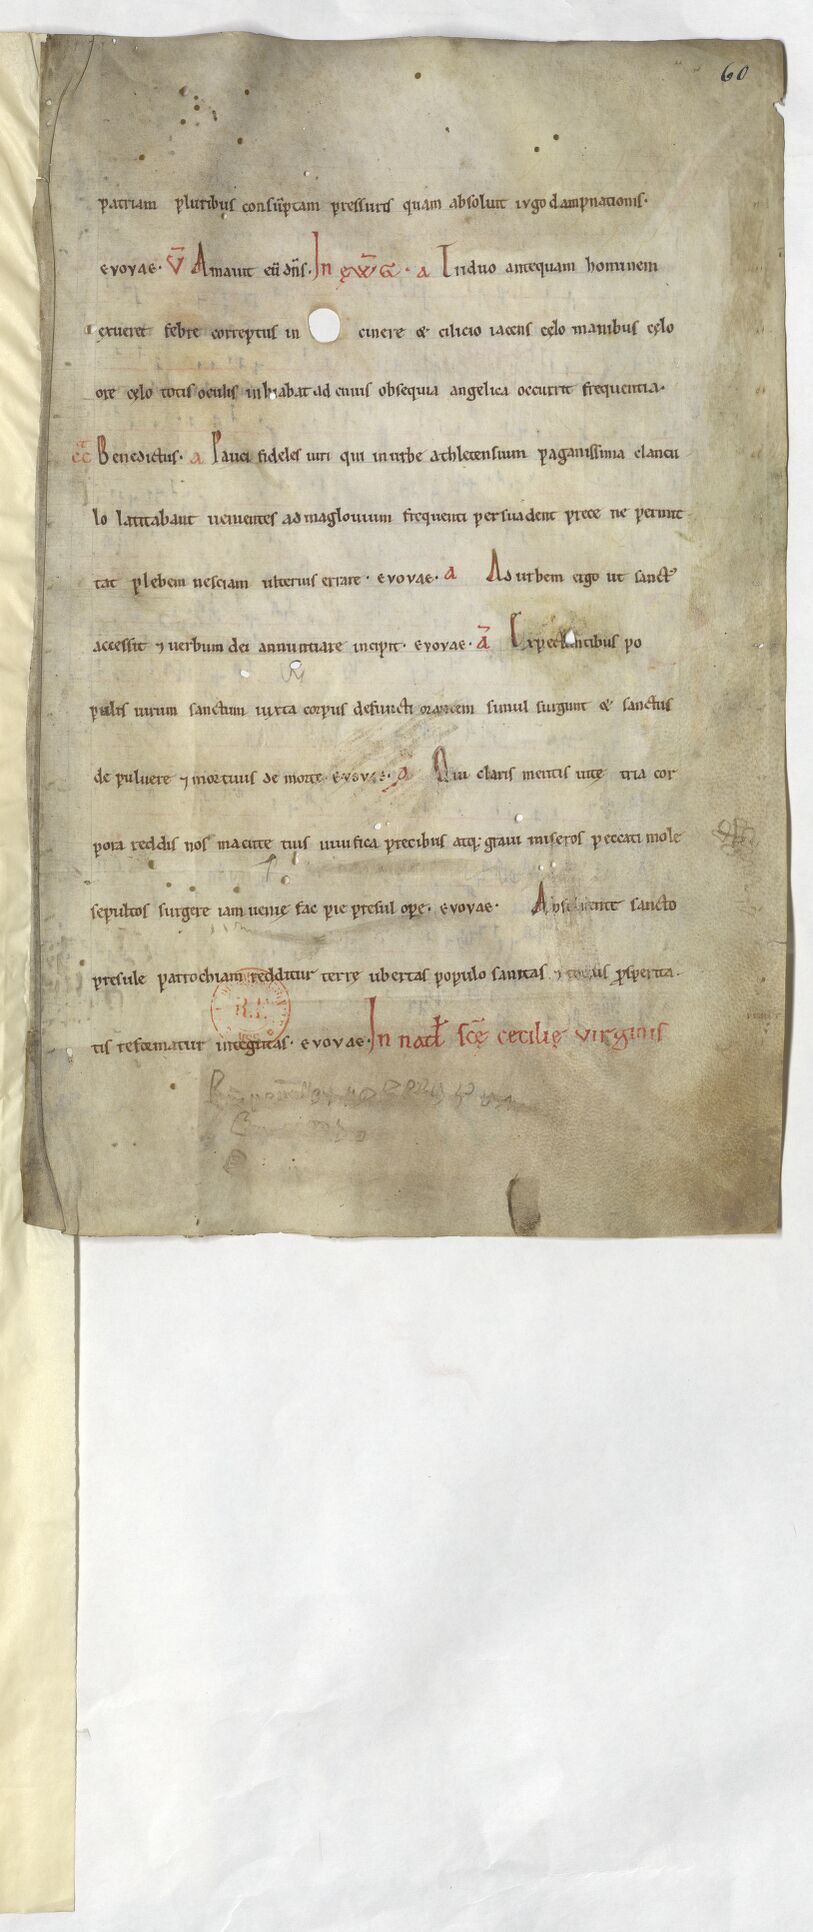 60
patriam pluribus consūptam pressuris quam absoluit iugo dampnationis·
evovae· V̄ Amauit eū dn̄s· In ęW̄G· a Triduo antequam hominem
exueret febre correptus in cinere & cilicio iacens cęlo manibus cęlo
ore cęlo totis oculis inhiabat ad cuius obsequia angelica occurrit frequentia·
Benedictus· a Pauci fideles uiri qui in urbe athletensium paganissima clancu
lo latitabant uenientes ad maglouium frequenti persuadent prece ne permit
tat plebem nesciam ulterius errare· evovae· a Ad urbem ergo ut sanctꝰ
accessit ⁊ uerbum dei annuntiare incipit· evovae· ā Expectantibus po
pulis uirum sanctum iuxta corpus defuncti orantem simul surgunt & sanctus
de puluere ⁊ mortuus de morte· evovae· a Qui claris meritis uitę tria cor
pora reddis nos macute tuis uiuifica precibus atq; graui miseros peccati mole
sepultos surgere iam uenię fac pie presul ope· evovae· Absoluente sancto
presule parrochiam redditur terrę ubertas populo sanitas ⁊ totius ꝓsperita
tis reformatur integritas· evovae· In natł scę̄ cecilię virginis